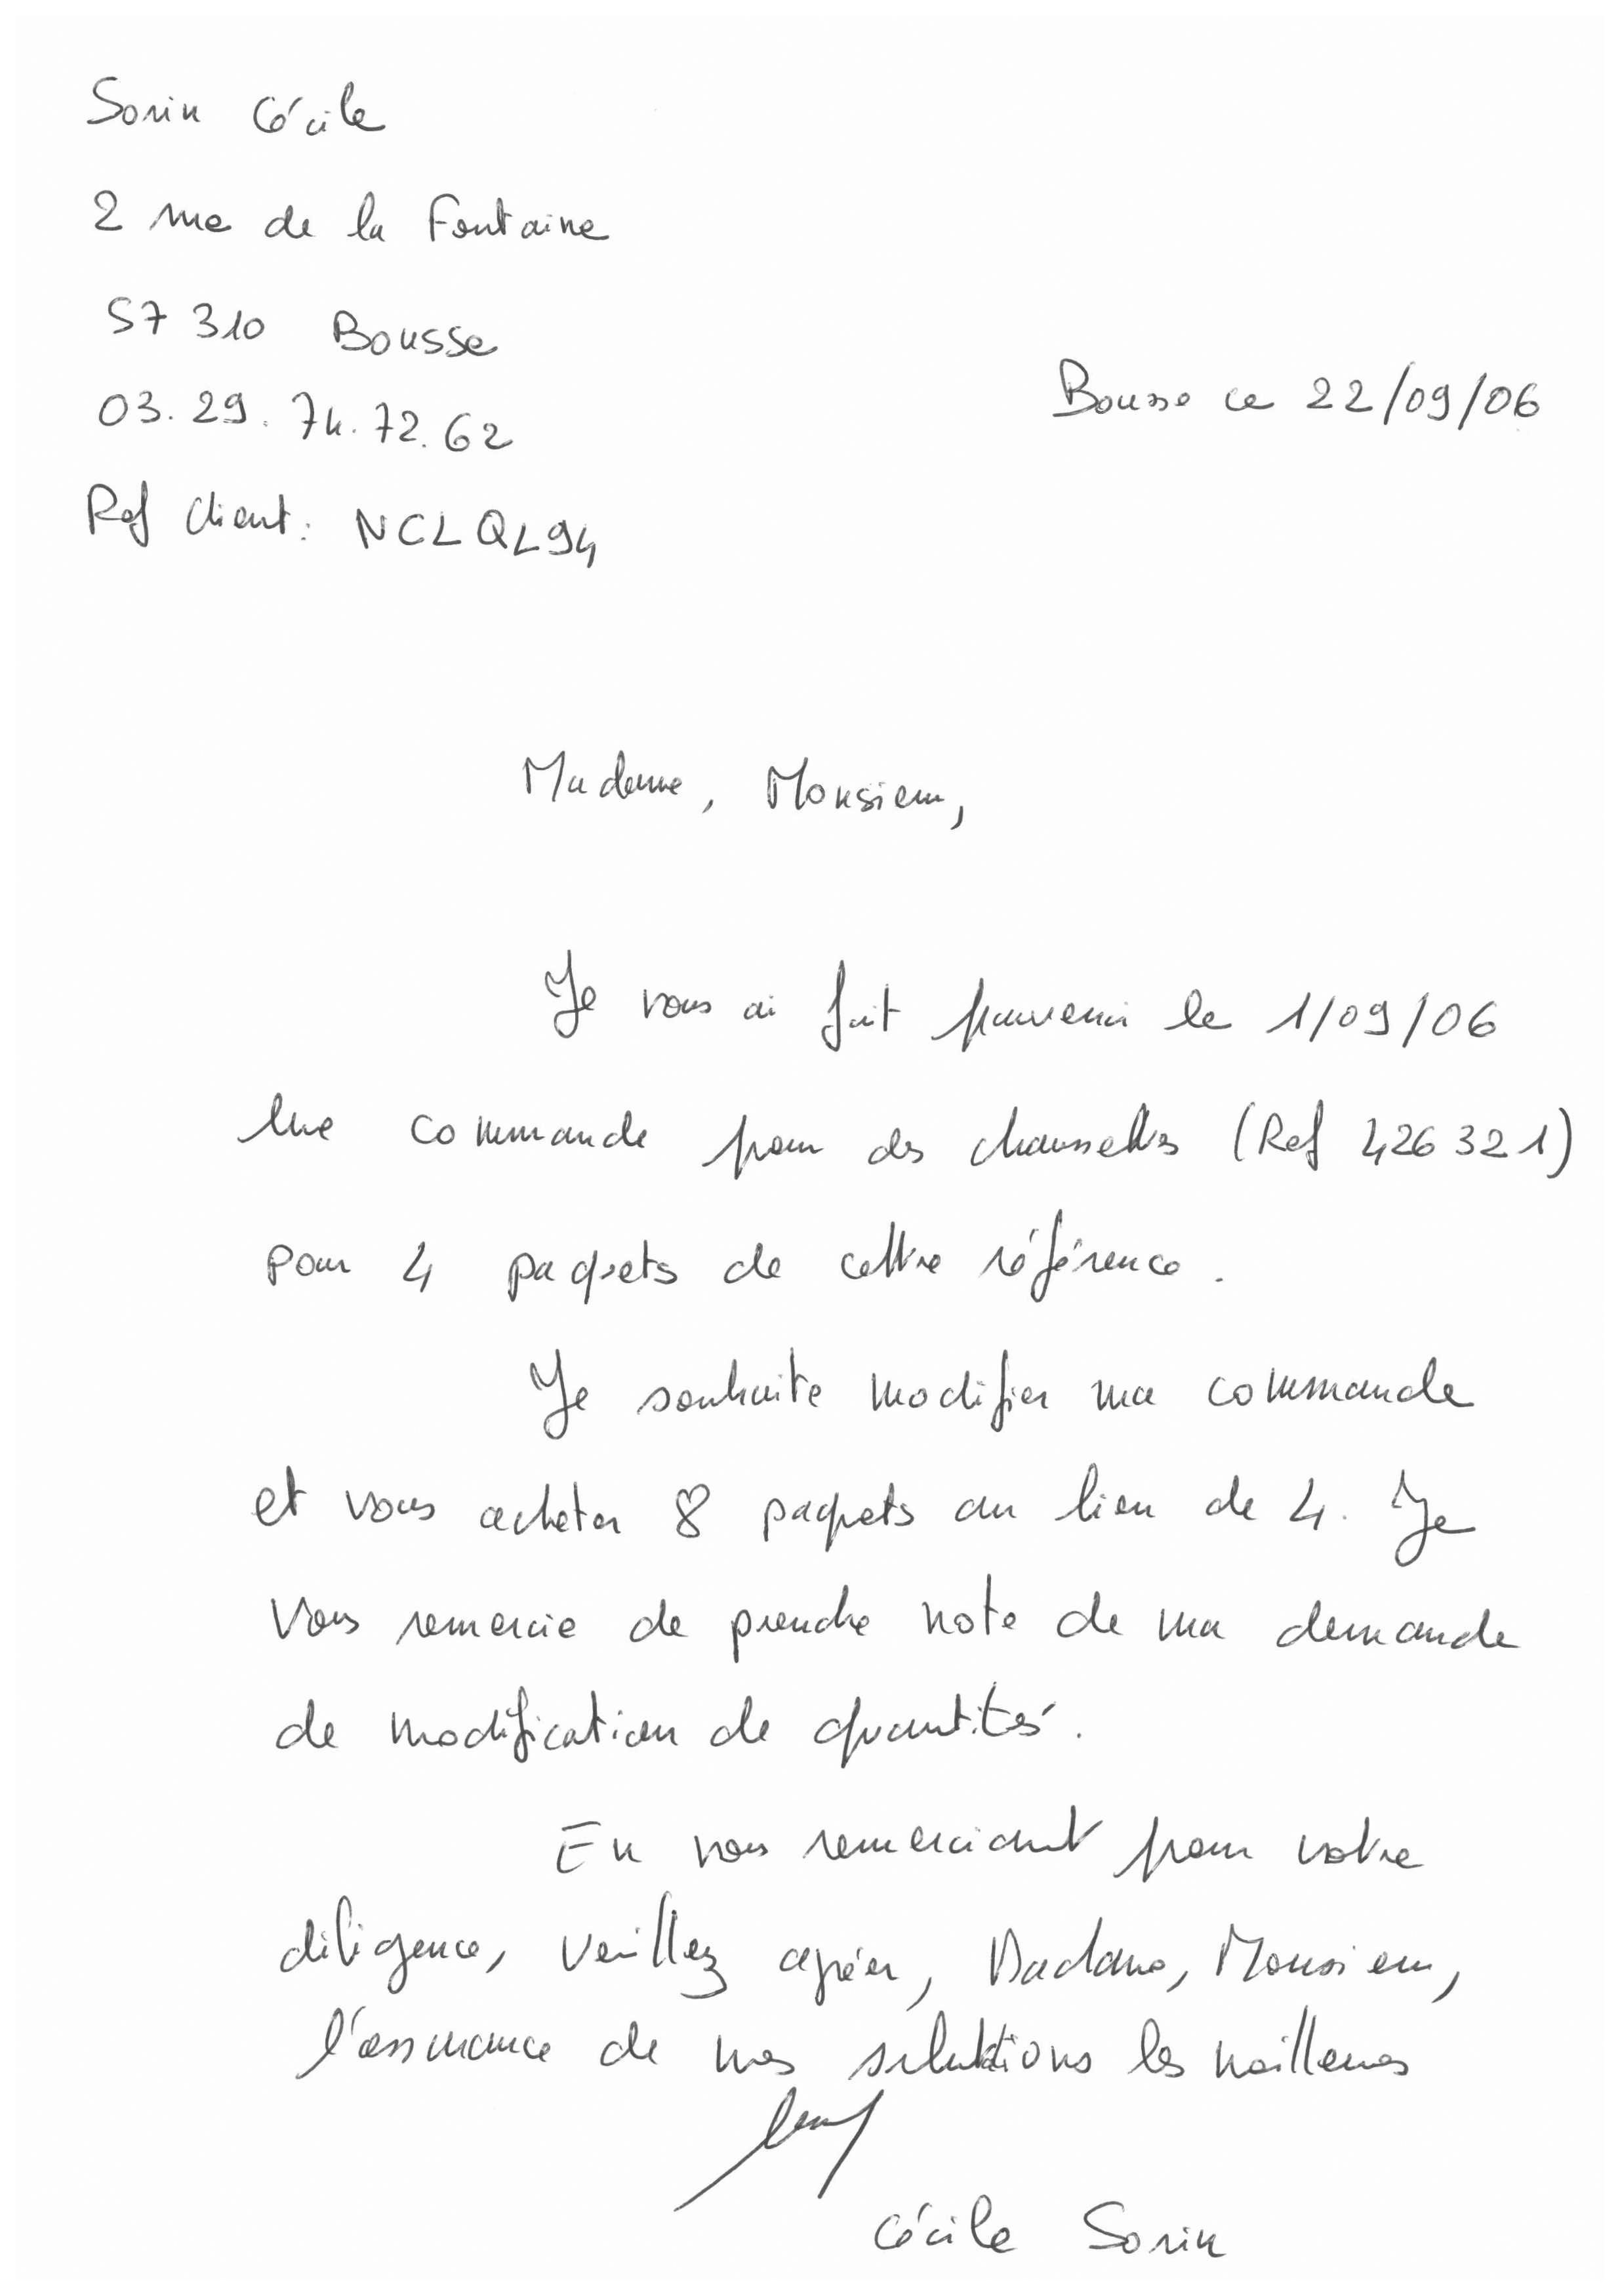 Sorin Cécile
2 rue de la Fontaine
57 310 Bousse
03.29.74.72.62
Bousse ce 22/09/06
Ref Client: NCLQL94
Madame, Monsieur,
Je vous ai fait parvenir le 1/09/06
une commande pour des chaussettes (Ref 426321)
pour 4 paquets de cette référence.
Je souhaite modifier ma commande
et vous acheter 8 paquets au lieu de 4. Je
vous remercie de prendre note de ma demande
de modification de quantités.
En vous remerciant pour votre
diligence, veuillez agréer, Madame, Monsieur,
l'assurance de mes salutations les meilleures
Cécile Sorin